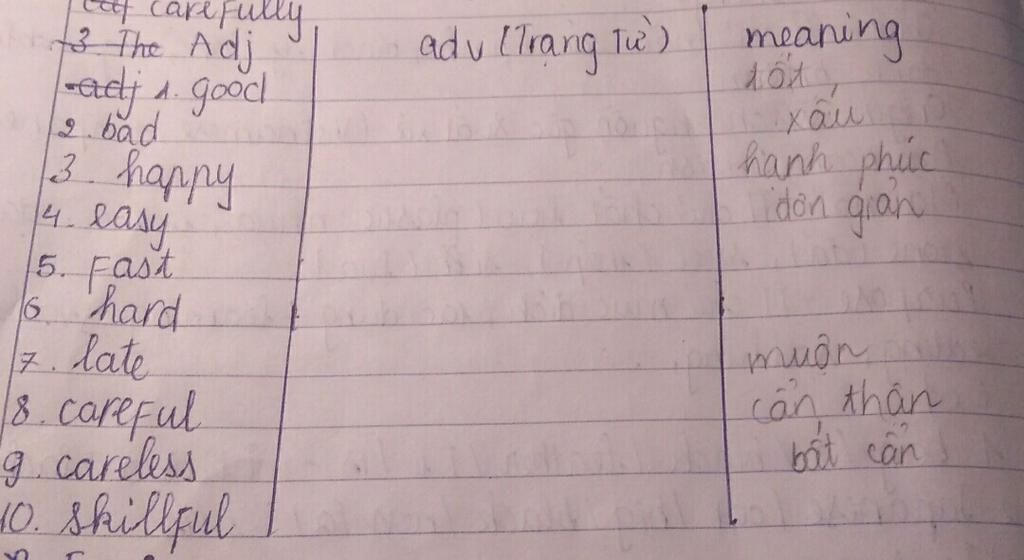 carefully
3 The Adj adv (Trạng Từ) meaning
adj 1. good tốt
2. bad xấu
3. happy hạnh phúc
4. easy đơn giản
5. Fast
6 hard
7. late muộn
8. careful cẩn thận
9 careless bất cẩn
10. skillful